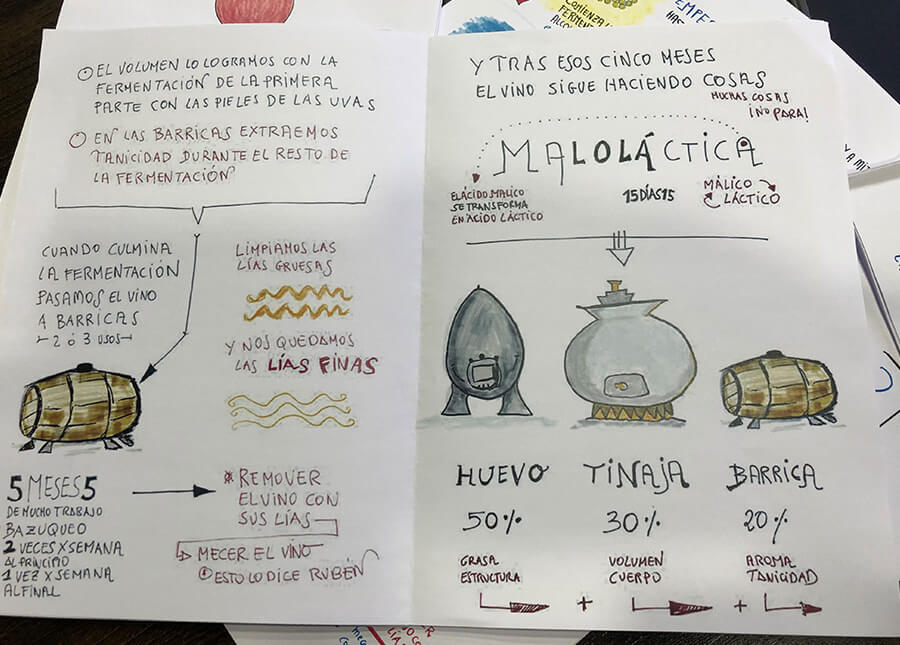 EL VOLUMEN LO LOGRAMOS CON LA
FERMENTACIÓN DE LA PRIMERA
PARTE CON LAS PIELES DE LAS UVAS
EN LAS BARRICAS EXTRAEMOS
TANICIDAD DURANTE EL RESTO DE
LA FERMENTACIÓN
CUANDO CULMINA
LA FERMENTACIÓN
PASAMOS EL VINO
A BARRICAS
2 ó 3 USOS
LIMPIAMOS LAS
LÍAS GRUESAS
Y NOS QUEDAMOS
LAS LÍAS FINAS
5 MESES 5
DE MUCHO TRABAJO
BAZUQUEO
2 VECES X SEMANA
AL PRINCIPIO
1 VEZ X SEMANA
AL FINAL
* REMOVER
EL VINO CON
SUS LÍAS
MECER EL VINO
ESTO LO DICE RUBÉN
Y TRAS ESOS CINCO MESES
EL VINO SIGUE HACIENDO COSAS
MUCHAS COSAS
¡NO PARA!
MALOLÁCTICA
EL ÁCIDO MALICO
SE TRANSFORMA
EN ÁCIDO LÁCTICO
15 DÍAS 15
MÁLICO
LÁCTICO
HUEVO
50%
GRASA
ESTRUCTURA
+
TINAJA
30%
VOLUMEN
CUERPO
+
BARRICA
20%
AROMA
TANICIDAD
COMIENZA